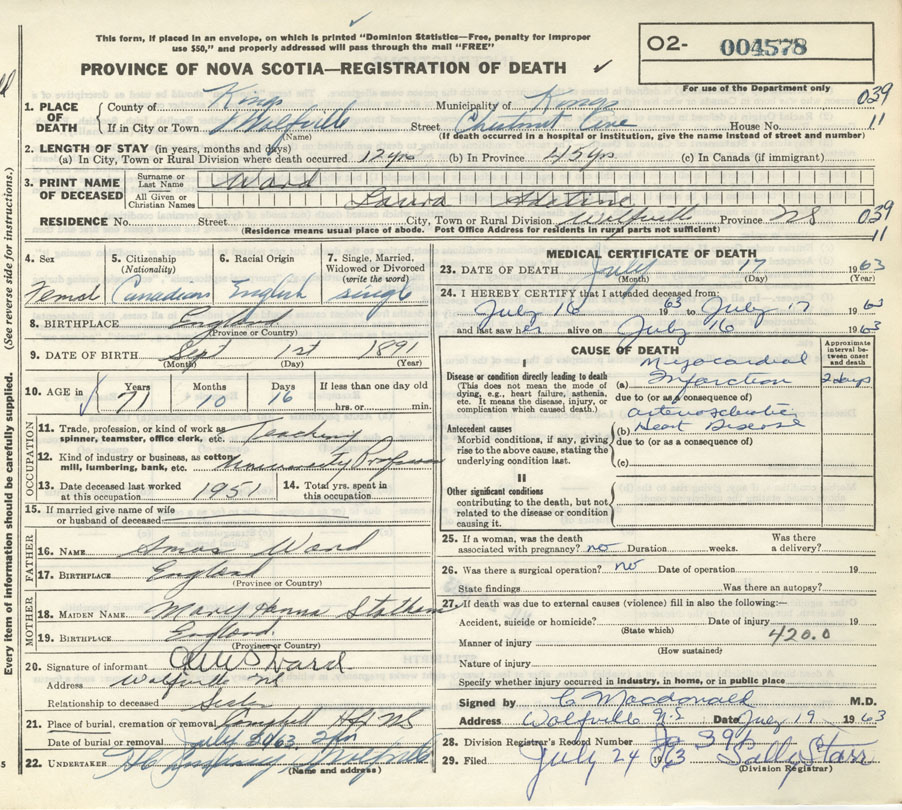 This form, if placed in an envelope, on which is printed "Dominion Statistics—Free, penalty for improper
use $50," and properly addressed will pass through the mail "FREE"
PROVINCE OF NOVA SCOTIA—REGISTRATION OF DEATH ✓
O2- 004578
For use of the Department only
039
11
1. PLACE OF DEATH { County of Kings Municipality of Kings
If in City or Town Wolfville (Name) Street Chestnut Ave House No.
(If death occurred in a hospital or institution, give the name instead of street and number)
2. LENGTH OF STAY (in years, months and days)
(a) In City, Town or Rural Division where death occurred 12 yrs (b) In Province 45 yrs (c) In Canada (if immigrant)
3. PRINT NAME OF DECEASED { Surname or Last Name Ward
All Given or Christian Names Laura Adeline
RESIDENCE No. Street City, Town or Rural Division Wolfville Province NS 039
(Residence means usual place of abode. Post Office Address for residents in rural parts not sufficient) 11
(See reverse side for instructions.)
Every item of information should be carefully supplied.
4. Sex 5. Citizenship (Nationality) 6. Racial Origin 7. Single, Married, Widowed or Divorced (write the word)
Femal Canadian English singl
8. BIRTHPLACE England
(Province or Country)
9. DATE OF BIRTH Sept 1st 1891
(Month) (Day) (Year)
10. AGE in Years Months Days If less than one day old
71 10 16 hrs. or min.
OCCUPATION
11. Trade, profession, or kind of work as spinner, teamster, office clerk, etc. Teaching
12. Kind of industry or business, as cotton mill, lumbering, bank, etc. University Professor
13. Date deceased last worked at this occupation 1951 14. Total yrs. spent in this occupation
15. If married give name of wife or husband of deceased
FATHER
16. NAME Amos Ward
17. BIRTHPLACE England
(Province or Country)
MOTHER
18. MAIDEN NAME Mary Hanna Statham
19. BIRTHPLACE England.
(Province or Country)
20. Signature of informant Ward
Address Wolfville NS
Relationship to deceased Sister
21. Place of burial, cremation or removal NS
Date of burial or removal July 20/63
22. UNDERTAKER Wolfville
(Name and address)
MEDICAL CERTIFICATE OF DEATH
23. DATE OF DEATH July 17 1963
(Month) (Day) (Year)
24. I HEREBY CERTIFY that I attended deceased from:
July 16 1963 to July 17 1963
and last saw her alive on July 16 1963
CAUSE OF DEATH
Approximate interval between onset and death
I
Disease or condition directly leading to death
(This does not mean the mode of dying, e.g., heart failure, asthenia, etc. It means the disease, injury, or complication which caused death.)
(a) Myocardial Infarction 2 days
due to (or as a consequence of)
Antecedent causes
Morbid conditions, if any, giving rise to the above cause, stating the underlying condition last.
(b) Arteriosclerotic Heart Disease
due to (or as a consequence of)
(c)
II
Other significant conditions
contributing to the death, but not related to the disease or condition causing it.
25. If a woman, was the death associated with pregnancy? no Duration weeks. Was there a delivery?
26. Was there a surgical operation? no Date of operation 19
State findings Was there an autopsy?
27. If death was due to external causes (violence) fill in also the following:—
Accident, suicide or homicide? Date of injury 19
(State which) 420.0
Manner of injury
(How sustained)
Nature of injury
Specify whether injury occurred in industry, in home, or in public place
Signed by C Macdonald M.D.
Address Wolfville N.S Date July 19 1963
28. Division Registrar's Record Number
29. Filed July 24 1963 Sally Starr
(Division Registrar)
5